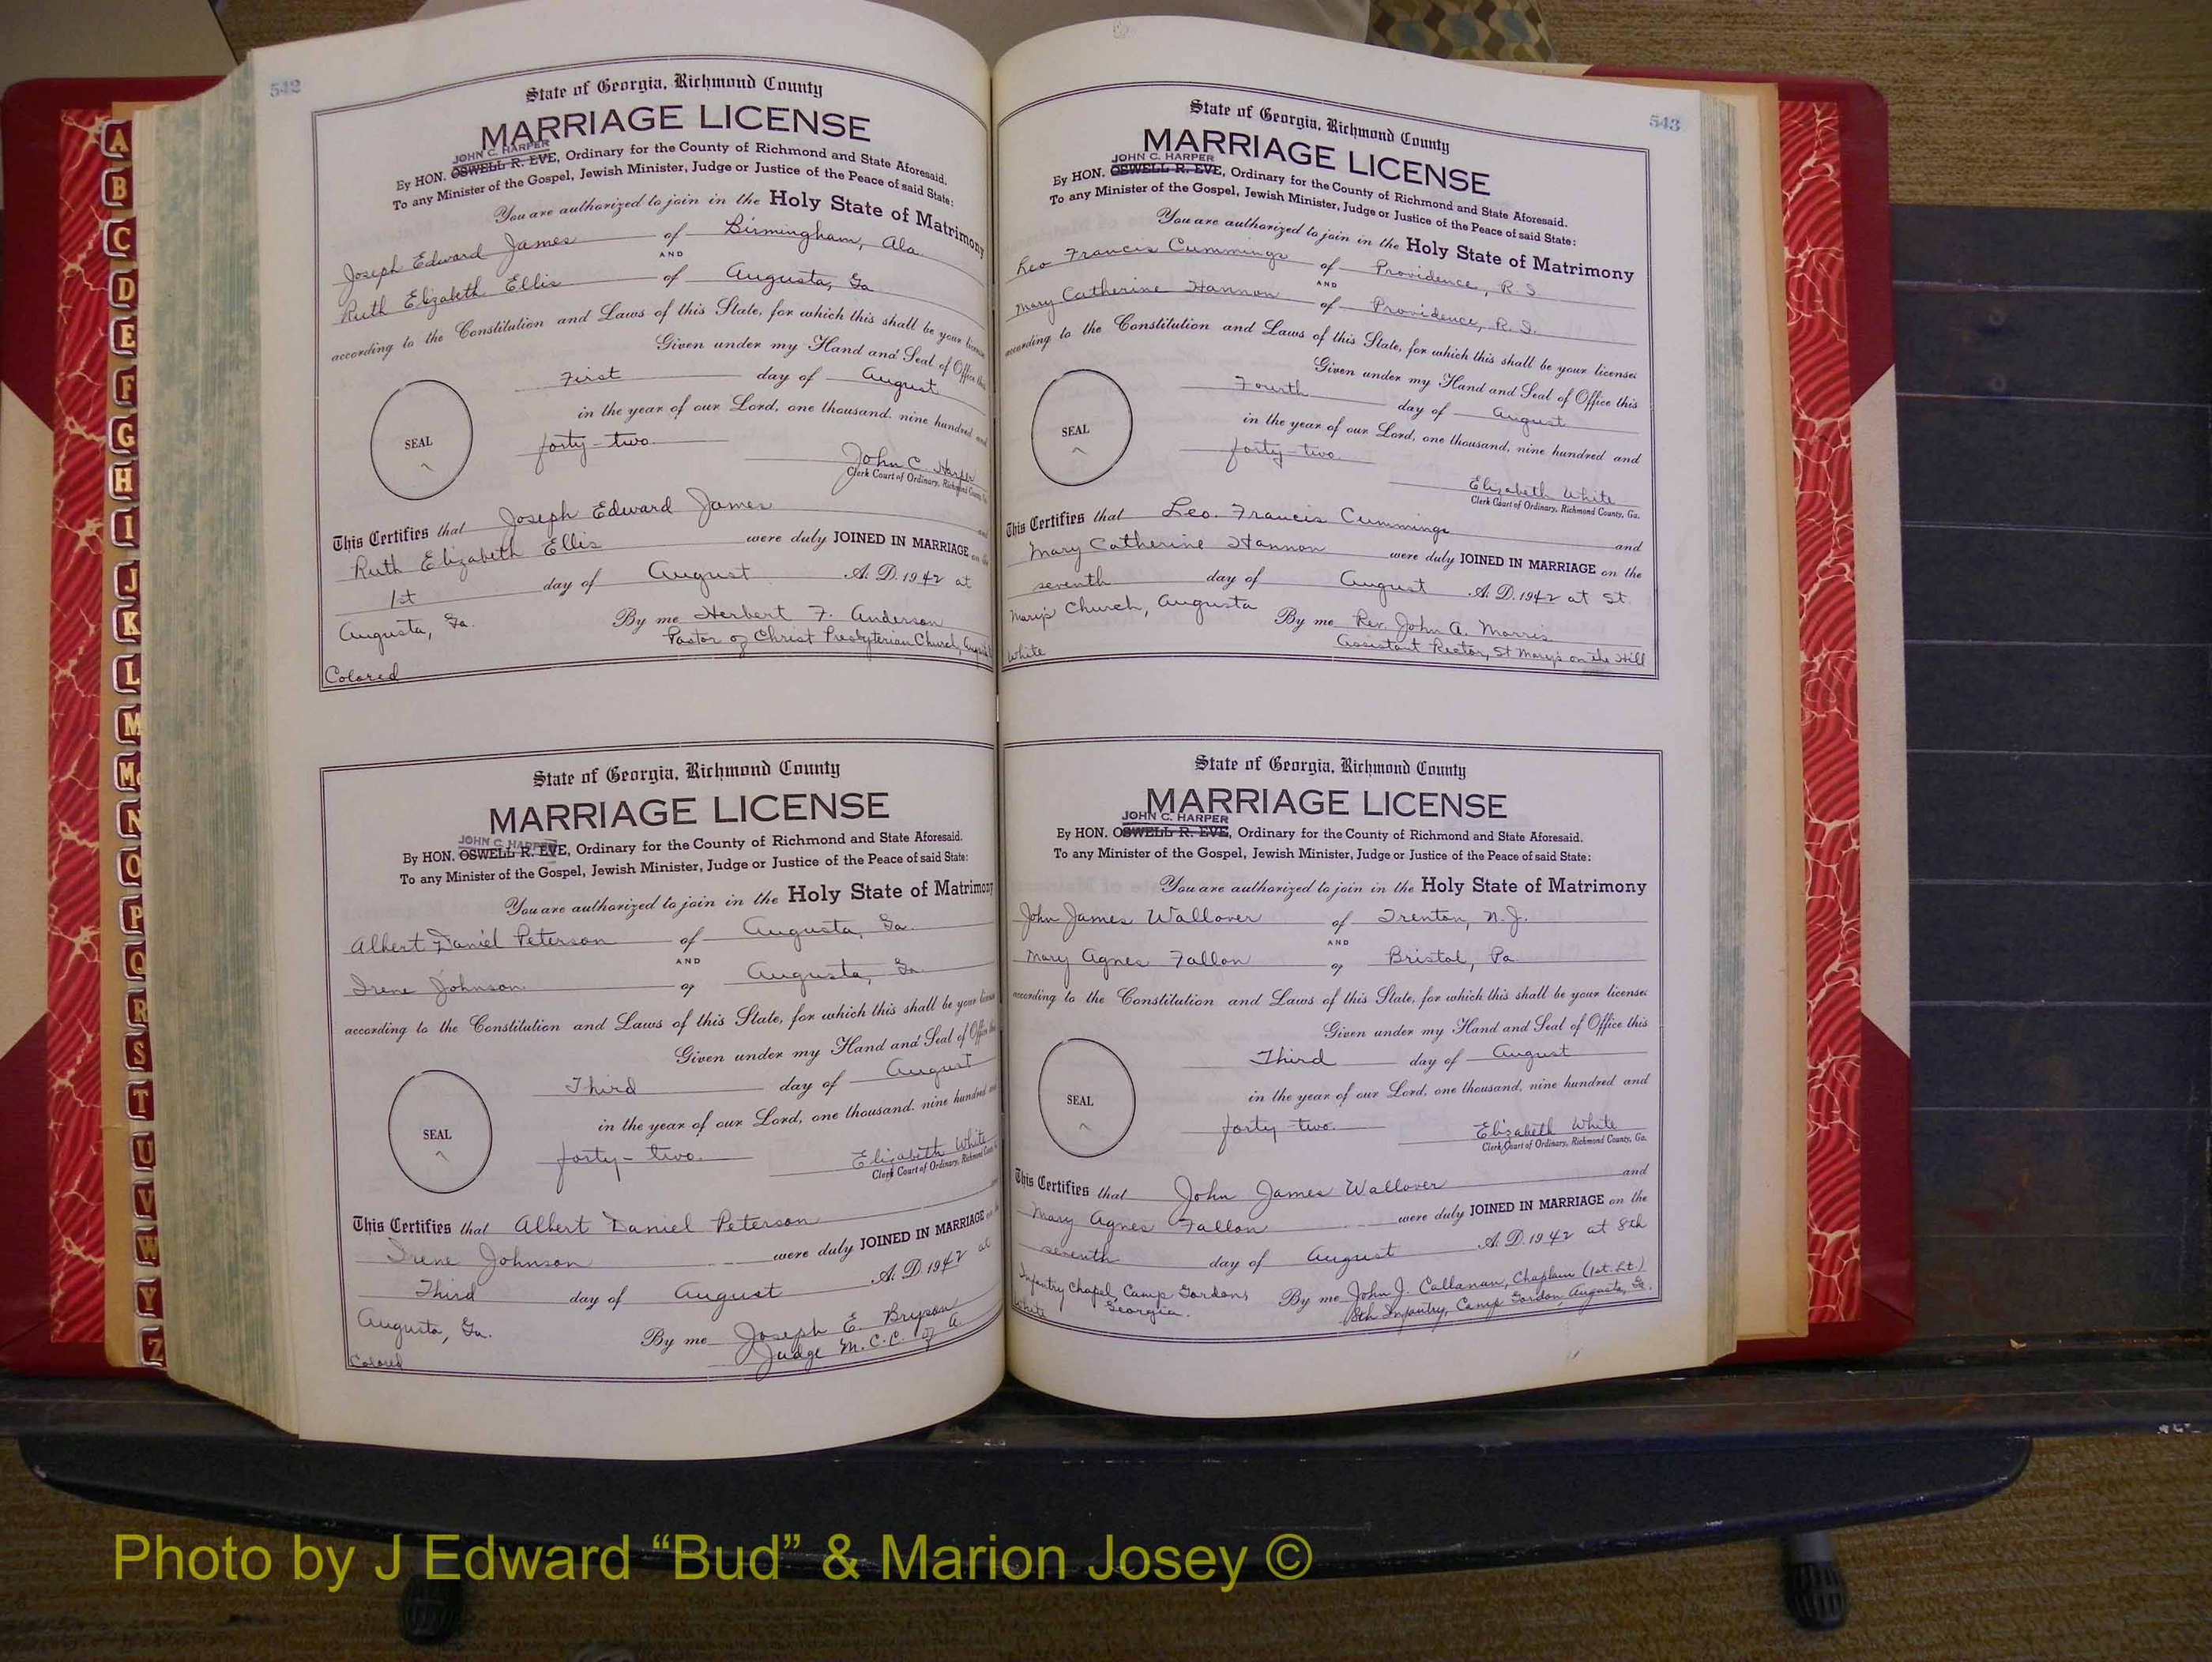 542
State of Georgia, Richmond County
MARRIAGE LICENSE
JOHN C. HARPER
By HON. OSWELL R. EVE, Ordinary for the County of Richmond and State Aforesaid.
To any Minister of the Gospel, Jewish Minister, Judge or Justice of the Peace of said State:
You are authorized to join in the Holy State of Matrimony
Joseph Edward James of Birmingham, Ala.
AND
Ruth Elizabeth Ellis of Augusta, Ga
according to the Constitution and Laws of this State, for which this shall be your license
Given under my Hand and Seal of Office this
First day of August
in the year of our Lord, one thousand. nine hundred and
SEAL
forty-two
John C. Harper
Clerk Court of Ordinary, Richmond County, Ga.
This Certifies that Joseph Edward James and
Ruth Elizabeth Ellis were duly JOINED IN MARRIAGE on the
1st day of August A. D. 1942 at
Augusta, Ga. By me Herbert F. Anderson
Pastor of Christ Presbyterian Church, Augusta
Colored
State of Georgia, Richmond County
MARRIAGE LICENSE
JOHN C. HARPER
By HON. OSWELL R. EVE, Ordinary for the County of Richmond and State Aforesaid.
To any Minister of the Gospel, Jewish Minister, Judge or Justice of the Peace of said State:
You are authorized to join in the Holy State of Matrimony
Albert Daniel Peterson of Augusta, Ga.
AND
Irene Johnson of Augusta, Ga.
according to the Constitution and Laws of this State, for which this shall be your license
Given under my Hand and Seal of Office this
Third day of August
in the year of our Lord, one thousand. nine hundred and
SEAL
forty-two.
Elizabeth White
Clerk Court of Ordinary, Richmond County
This Certifies that Albert Daniel Peterson
Irene Johnson were duly JOINED IN MARRIAGE on the
Third day of August A. D. 1942 at
Augusta, Ga. By me Joseph E. Bryson
Judge M.C.C. of A.
Colored
543
State of Georgia, Richmond County
MARRIAGE LICENSE
JOHN C. HARPER
By HON. OSWELL R. EVE, Ordinary for the County of Richmond and State Aforesaid.
To any Minister of the Gospel, Jewish Minister, Judge or Justice of the Peace of said State:
You are authorized to join in the Holy State of Matrimony
Leo Francis Cummings of Providence, R.I.
AND
Mary Catherine Hannon of Providence, R.I.
according to the Constitution and Laws of this State, for which this shall be your license:
Given under my Hand and Seal of Office this
Fourth day of August
in the year of our Lord, one thousand, nine hundred and
SEAL
forty-two.
Elizabeth White
Clerk Court of Ordinary, Richmond County, Ga.
This Certifies that Leo. Francis Cummings and
Mary Catherine Hannon were duly JOINED IN MARRIAGE on the
seventh day of August A. D. 1942 at St.
Mary's Church, Augusta By me Rev. John A. Morris
Assistant Rector, St Mary's on the Hill
White
State of Georgia, Richmond County
MARRIAGE LICENSE
JOHN C. HARPER
By HON. OSWELL R. EVE, Ordinary for the County of Richmond and State Aforesaid.
To any Minister of the Gospel, Jewish Minister, Judge or Justice of the Peace of said State:
You are authorized to join in the Holy State of Matrimony
John James Wallover of Trenton, N.J.
AND
Mary Agnes Fallon of Bristol, Pa
according to the Constitution and Laws of this State, for which this shall be your license:
Given under my Hand and Seal of Office this
Third day of August
in the year of our Lord, one thousand, nine hundred and
SEAL
forty-two.
Elizabeth White
Clerk Court of Ordinary, Richmond County, Ga.
This Certifies that John James Wallover and
Mary Agnes Fallon were duly JOINED IN MARRIAGE on the
seventh day of August A. D. 1942 at 8th
Infantry Chapel, Camp Gordons By me John J. Callanan, Chaplain (1st. Lt.)
Georgia. 8th Infantry, Camp Gordon, Augusta, Ga.
White
A
B
C
D
E
F
G
H
I
J
K
L
M
Mc
N
O
P
Q
R
S
T
U
V
W
Y
Z
Photo by J Edward “Bud” & Marion Josey ©